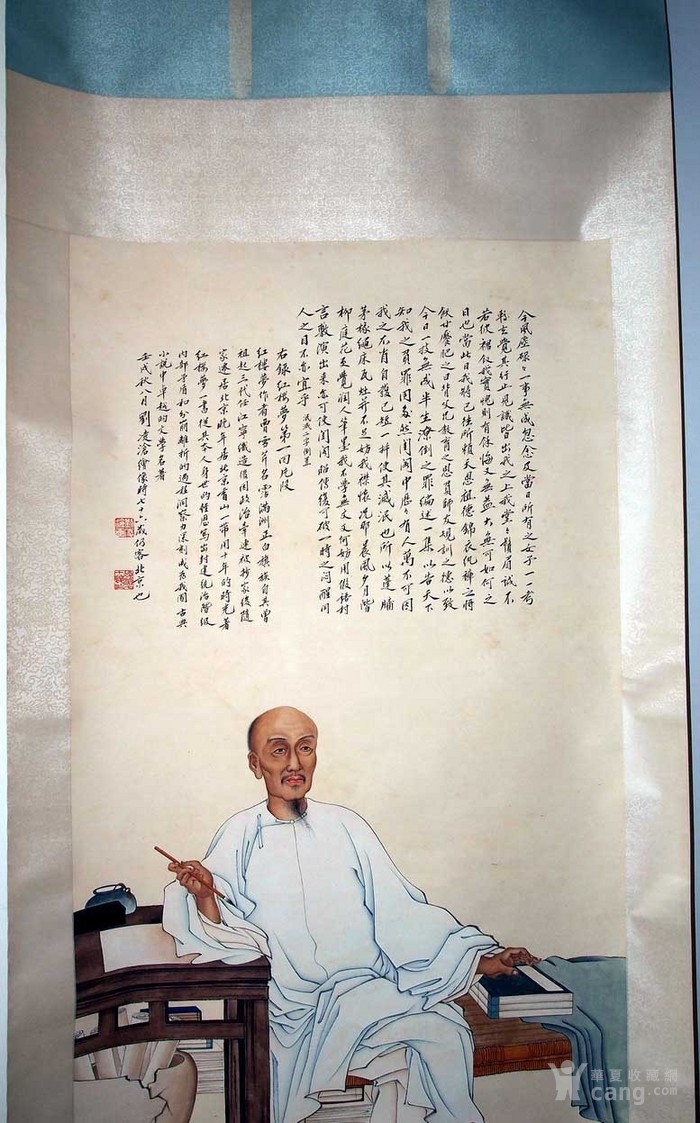 今風塵碌々一事無成忽念及當日所有之女子一一考
較去覺其行止見識皆出我之上我堂々鬚眉誠不
若彼裙釵我實愧則有餘悔又無益大無可如何之
日也當此日我將已往所賴天恩祖德錦衣紈袴之時
飫甘饜肥之日背父兄教育之恩負師友規訓之德以致
今日一技無成半生潦倒之罪編述一集以告天下
知我之負罪固多然閨閣中歷々有人萬不可因
我之不肖自護己短一并使其滅泯也所以蓬牖
茅椽繩床瓦灶并不足妨我襟懷況那晨風夕月階
柳庭花更覺潤人筆墨我不學無文又何妨用假語村
言敷演出來亦可使閨閣昭傳復可破一時之悶醒同
人之目不亦宜乎 泯滅二字倒置
右錄紅樓夢第一回片段
紅樓夢作者曹雪芹名霑滿洲正白旗族自其曾
祖起三代任江寧織造後因政治牽連被抄家後隨
家遷居北京晚年居北京香山一帶用十年的時光著
紅樓夢一書從其本人身世的經歷寫出封建統治階級
內部矛盾和分崩離析的過程洞察力深刻成為我國古典
小說中卓越的文學名著
壬戌秋八月劉凌滄繪像時七十六歲仍客北京也
華夏收藏網
cang.com